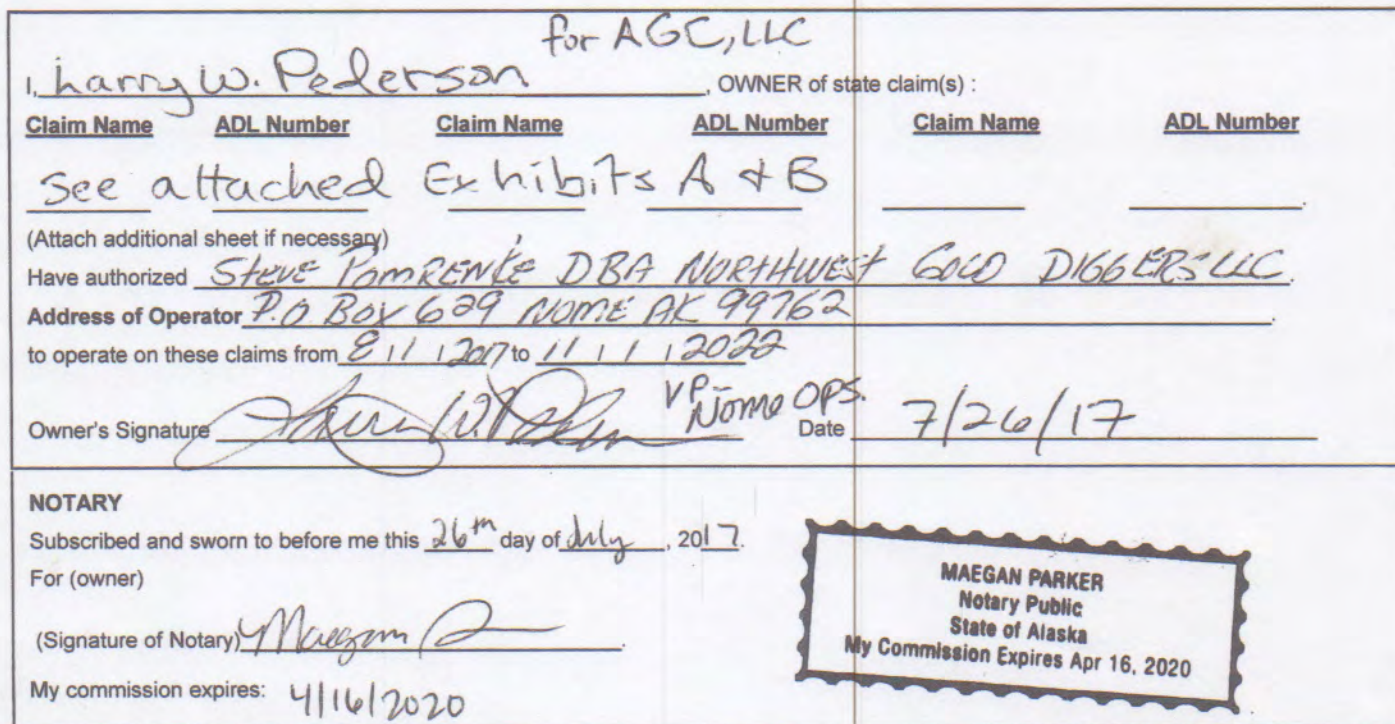 for AGC, LLC
I, Larry W. Pederson, OWNER of state claim(s) :
Claim Name ADL Number Claim Name ADL Number Claim Name ADL Number
See attached Exhibits A & B
(Attach additional sheet if necessary)
Have authorized STEVE POMRENKE DBA NORTHWEST GOLD DIGGERS LLC.
Address of Operator P.O. BOX 629 NOME AK 99762
to operate on these claims from 8 / 1 / 2017 to 11 / 1 / 2022
VP- Nome OPS.
Owner's Signature Larry W. Pederson Date 7/26/17
NOTARY
Subscribed and sworn to before me this 26th day of July, 2017.
For (owner)
(Signature of Notary) Maegan
My commission expires: 4/16/2020
MAEGAN PARKER
Notary Public
State of Alaska
My Commission Expires Apr 16, 2020